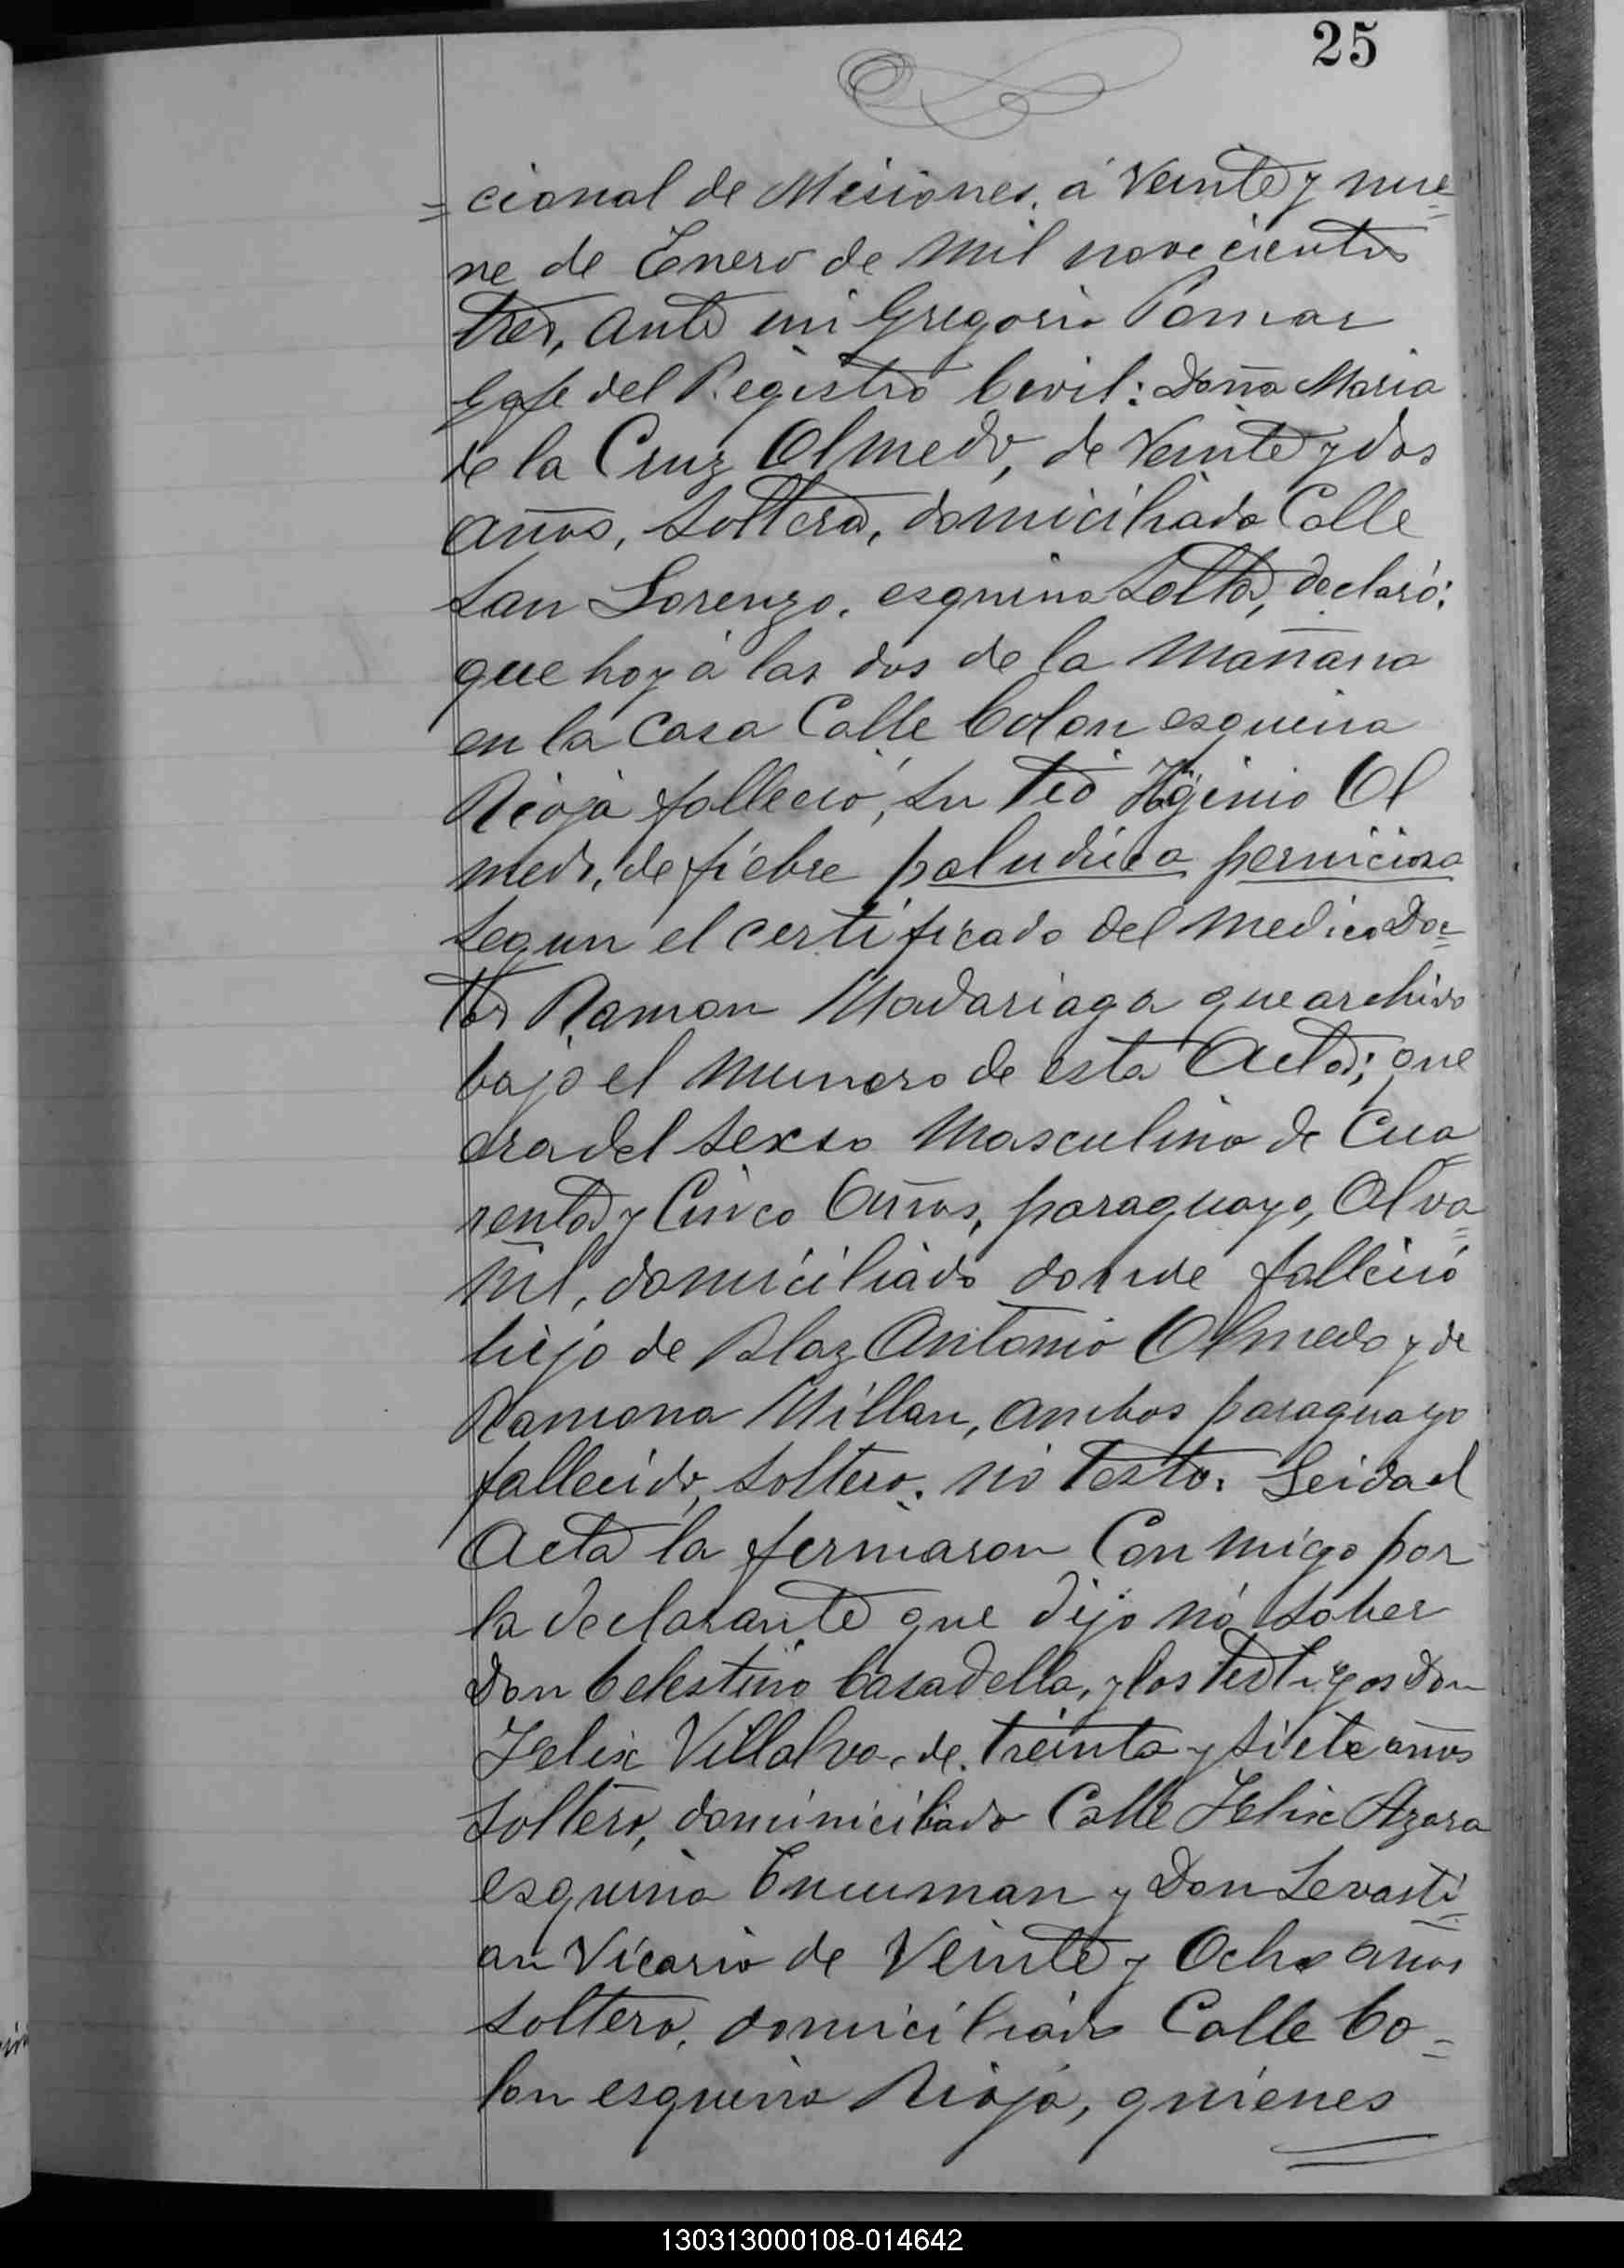 25
=cional de Misiones, á Veinte y nue=
ve de Enero de Mil novecientos
tres, Ante mi Gregorio Pomar
Gefe del Registro Civil: Doña Maria
de la Cruz Olmedo, de Veinte y dos
años, Soltera, domiciliada Calle
San Lorenzo, esquina Salta, declaró:
que hoy á las dos de la Mañana
en la Casa Calle Colon esquina
Rioja falleció, su tio Higinio Ol
medo, de fiebre paludica perniciosa
segun el certificado del Medico Doc=
tor Ramon Madariaga que archivo
bajo el Numero de esta Acta; que
era del sexso Masculino de Cua
renta y Cinco Años, paraguayo, Alva=
ñil, domiciliado donde falleció
hijo de Blaz Antonio Olmedo y de
Ramona Millan, ambos paraguayo
fallecido, soltero. no testo. Leida el
Acta la firmaron Con migo por
la declarante que dijo nó saber
Don Celestino Casadella, y los testigos Don
Felix Villalva, de treinta y siete años
soltero, dominiciliado Calle Felix Azara
esquina Tucuman y Don Sevasti=
an Vicario de Veinte y Ocho años
soltero, domiciliado Calle Co=
lon esquina Rioja, quienes
130313000108-014642